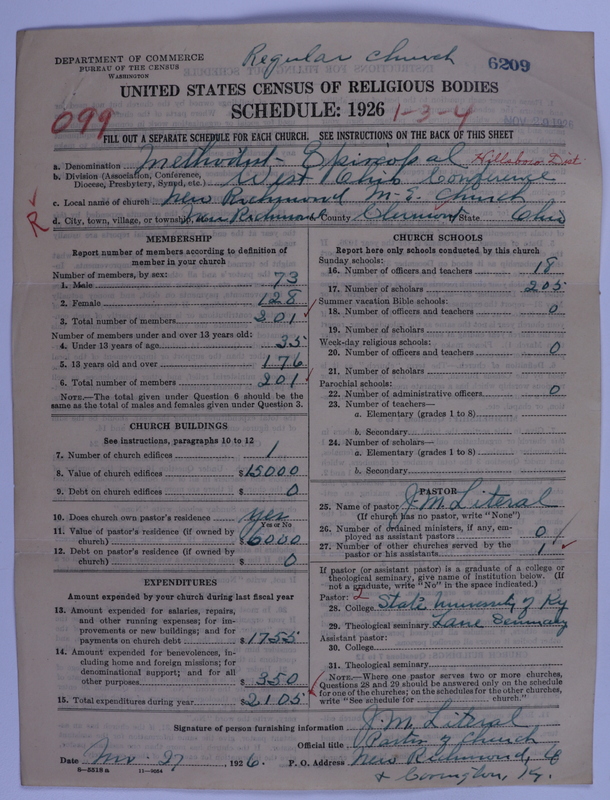 DEPARTMENT OF COMMERCE
BUREAU OF THE CENSUS
WASHINGTON
Regular Church
6209
UNITED STATES CENSUS OF RELIGIOUS BODIES
SCHEDULE: 1926
1-3-4
NOV 29 1926
099
FILL OUT A SEPARATE SCHEDULE FOR EACH CHURCH. SEE INSTRUCTIONS ON THE BACK OF THIS SHEET
a. Denomination Methodist - Episcopal Hillsboro Dist.
b. Division (Association, Conference, Diocese, Presbytery, Synod, etc.) West Ohio Conference
c. Local name of church New Richmond M. E. Church
R
d. City, town, village, or township New Richmond County Clermont State Ohio
MEMBERSHIP
Report number of members according to definition of
member in your church
Number of members, by sex:
1. Male 73
2. Female 128
3. Total number of members 201
Number of members under and over 13 years old:
4. Under 13 years of age 35
5. 13 years old and over 176
6. Total number of members 201
NOTE.—The total given under Question 6 should be the
same as the total of males and females given under Question 3.
CHURCH BUILDINGS
See instructions, paragraphs 10 to 12
7. Number of church edifices 1
8. Value of church edifices $15000
9. Debt on church edifices $ 0
10. Does church own pastor's residence yes
Yes or No
11. Value of pastor's residence (if owned by
church) $6000
12. Debt on pastor's residence (if owned by
church) $ 0
EXPENDITURES
Amount expended by your church during last fiscal year
13. Amount expended for salaries, repairs,
and other running expenses; for im-
provements or new buildings; and for
payments on church debt $1755
14. Amount expended for benevolences, in-
cluding home and foreign missions; for
denominational support; and for all
other purposes $350
15. Total expenditures during year $2105
CHURCH SCHOOLS
Report here only schools conducted by this church
Sunday schools:
16. Number of officers and teachers 18
17. Number of scholars 205
Summer vacation Bible schools:
18. Number of officers and teachers 0
19. Number of scholars
Week-day religious schools:
20. Number of officers and teachers 0
21. Number of scholars
Parochial schools:
22. Number of administrative officers 0
23. Number of teachers—
a. Elementary (grades 1 to 8)
b. Secondary
24. Number of scholars—
a. Elementary (grades 1 to 8)
b. Secondary
PASTOR
25. Name of pastor J. M. Literal
(If church has no pastor, write "None")
26. Number of ordained ministers, if any, em-
ployed as assistant pastors 0
27. Number of other churches served by the
pastor or his assistants 1
If pastor (or assistant pastor) is a graduate of a college or
theological seminary, give name of institution below. (If
not a graduate, write "No" in the space indicated.)
Pastor: 2
28. College State University of Ky
29. Theological seminary Lane Seminary
Assistant pastor:
30. College
31. Theological seminary
NOTE.—Where one pastor serves two or more churches,
Questions 28 and 29 should be answered only on the schedule
for one of the churches; on the schedules for the other churches,
write "See schedule for church."
Signature of person furnishing information J. M. Literal
Official title Pastor of Church
Date Nov. 27, 1926. P. O. Address New Richmond, O
6—5518 a 11—9054
+ Covington, Ky.